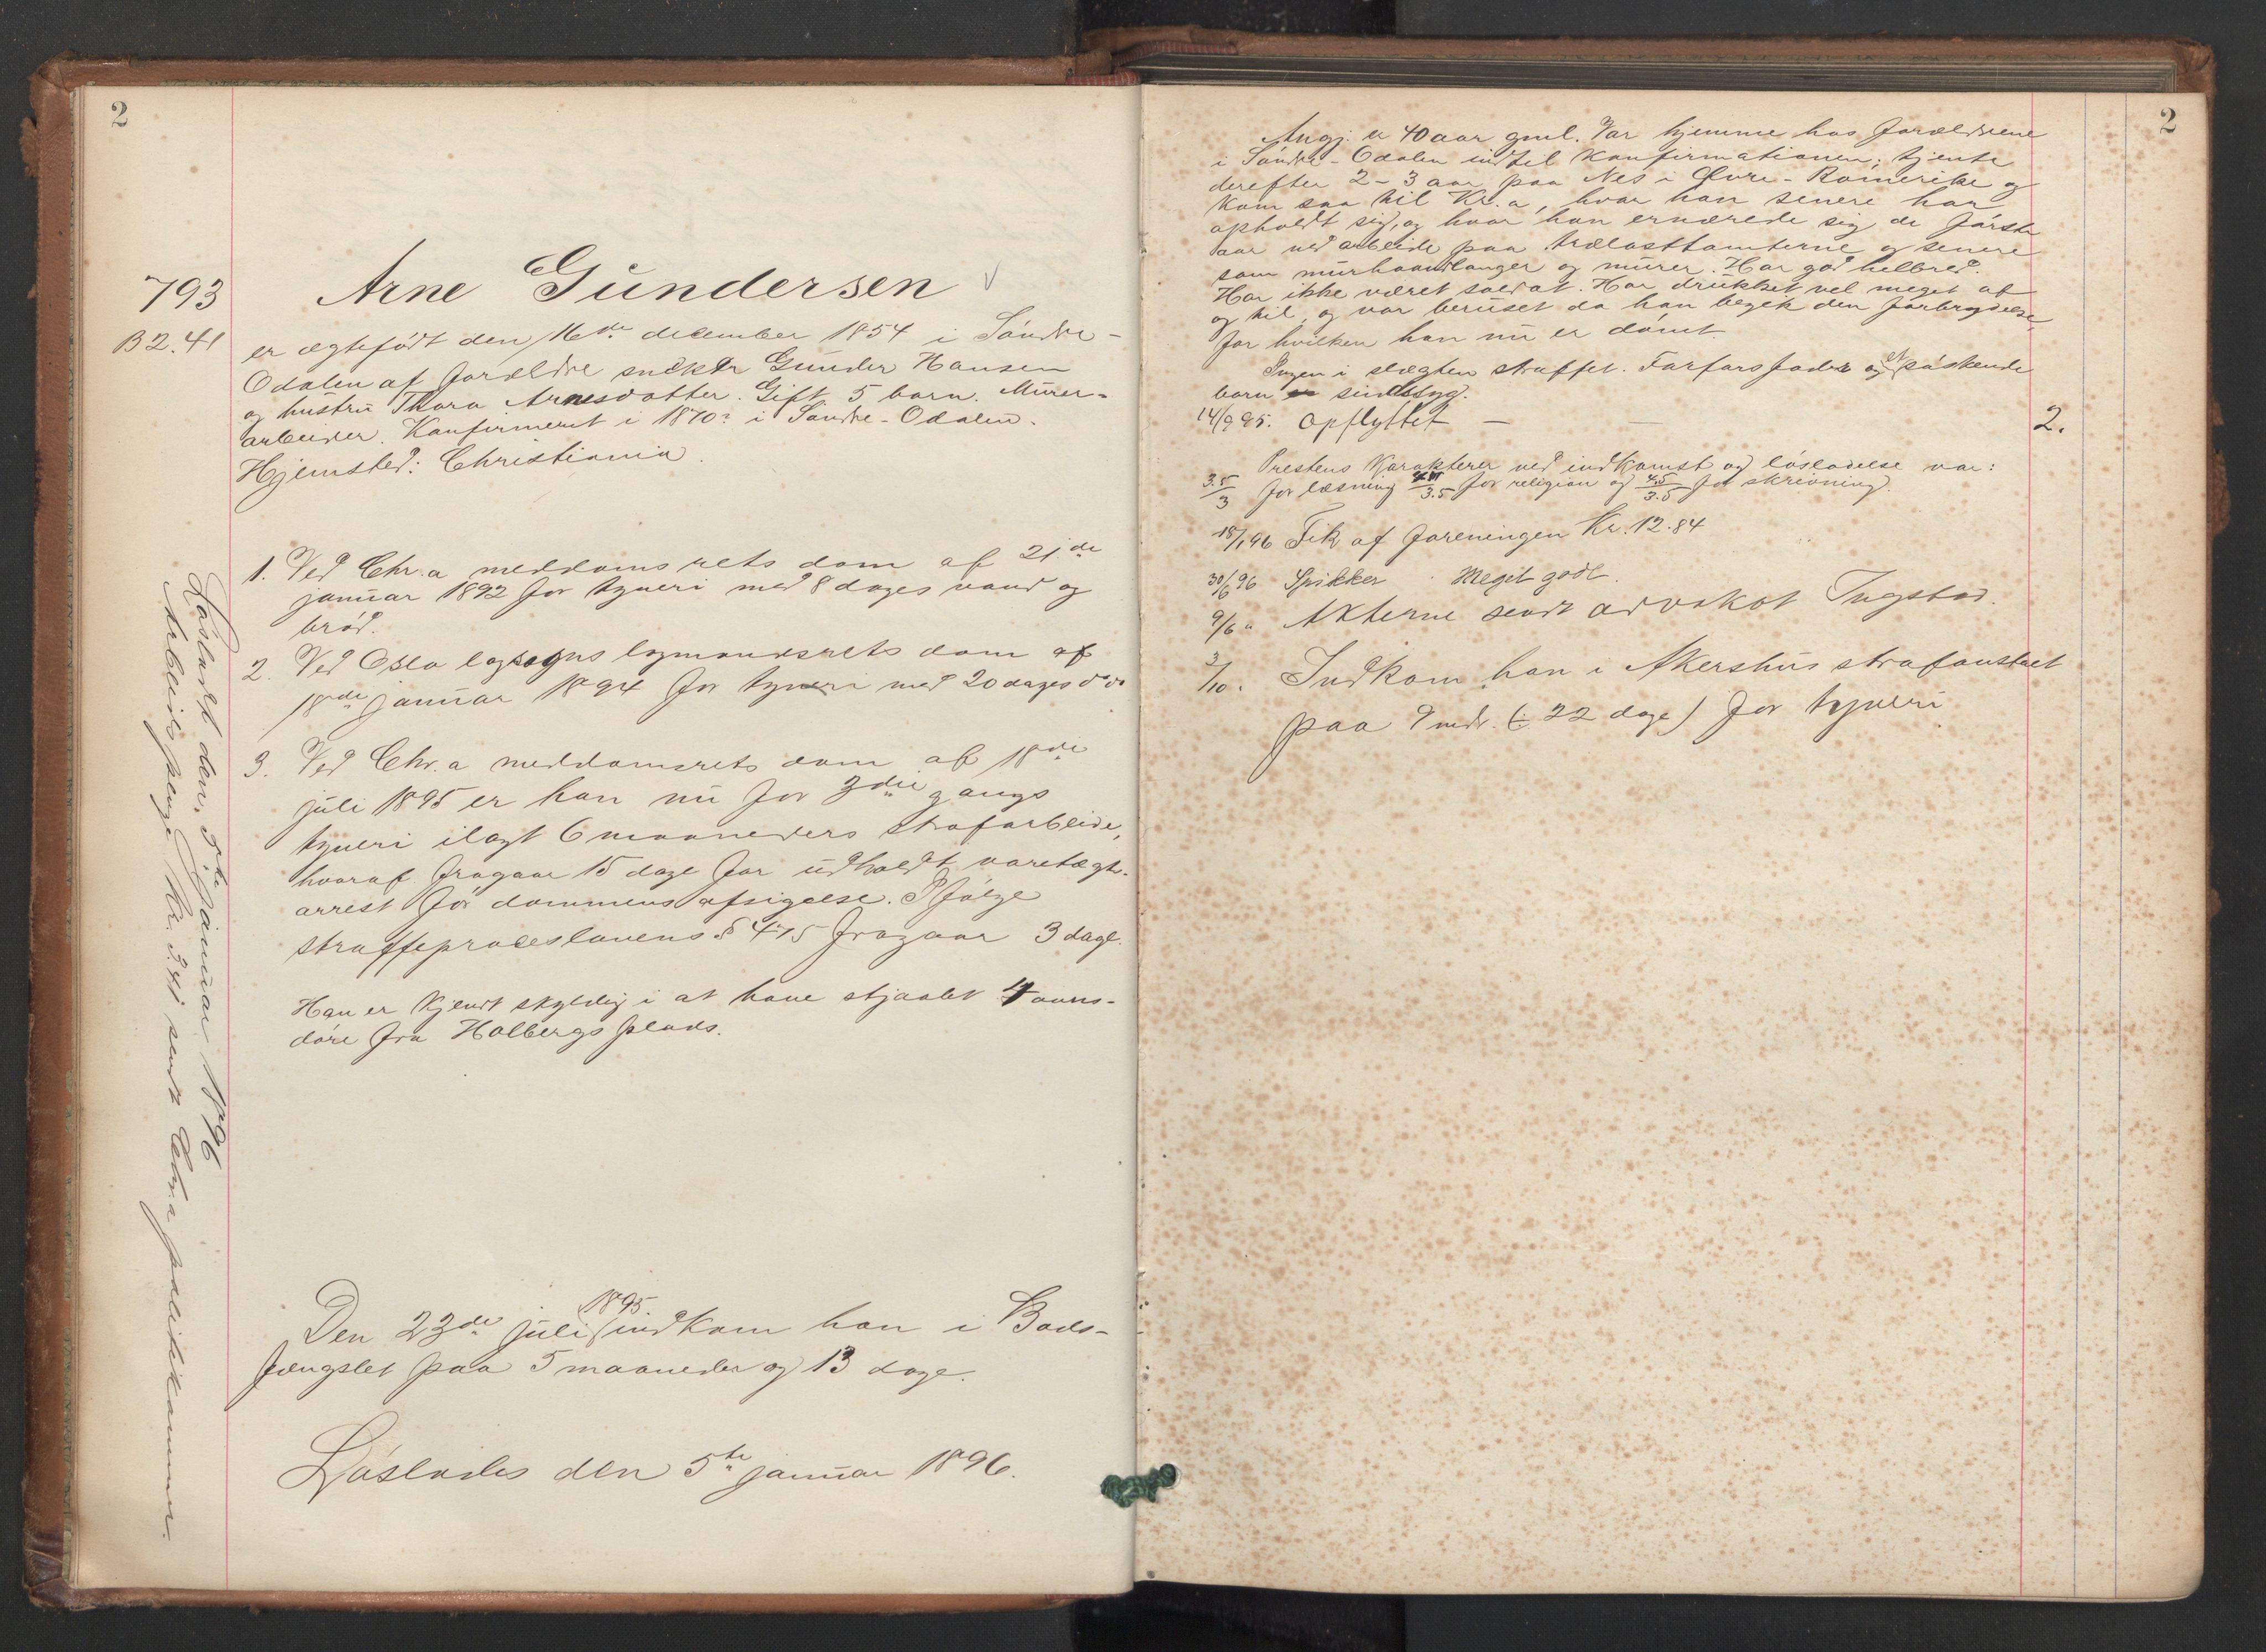 2
793
B 2.41
Arne Gundersen
er ægtefødt den 16de december 1854 i Søndre-
Odalen af forældre snekker Gunder Hansen
og hustru Thora Arnesdatter. Gift 5 barn. Murer-
arbeider. Konfirmeret i 1870? i Søndre-Odalen.
Hjemsted: Christiania.
1. Ved Chr.a meddomsrets dom af 21de
januar 1892 for tyveri med 8 dages vand og
brød.
2. Ved Oslo lagsogns lagmandsrets dom af
18de januar 1894 for tyveri med 20 dages do do
3. Ved Chr.a meddomsrets dom af 18de
juli 1895 er han nu for 3die gangs
tyveri ilagt 6 maaneders strafarbeide,
hvoraf fragaar 15 dage for udholdt varetægts-
arrest før dommens afsigelse. Ifølge
straffeproceslovens § 475 fragaar 3 dage.
Han er kjendt skyldig i at have stjaalet 4 ovns-
døre fra Holbergs plads.
Den 23de juli 1895 indkom han i Bods-
fængslet paa 5 maaneder og 13 dage.
Løslades den 5te januar 1896.
Løsladt den 5te Januar 1896
Arbeidspenge Kr. 3.41 sendt Chr.a politikammer.
2
Angj. er 40 aar gml. Var hjemme hos forældrene
i Søndre-Odalen indtil konfirmationen; tjente
derefter 2-3 aar paa Nes i Øvre-Romerike og
kom saa til Kr.a, hvor han senere har
opholdt sig, og hvor han ernærede sig de første
aar ved arbeide paa trælasttomterne og senere
som murhaandlanger og murer. Har god helbred.
Har ikke været soldat. Har drukket vel meget af
og til, og var beruset da han begik den forbrydelse
for hvilken han nu er dømt.
Ingen i slægten straffet. Farfars fader og et søskende
barn sindssyg.
14/9 95. Opflyttet — — 2.
Prestens karakterer ved indkomst og løsladelse var:
3.5/3 for læsning /3.5 for religion og 4.5/3.5 for skrivning.
18/1 96 Fik af foreningen Kr. 12.84
30/6 96 Spikker. Meget godt.
9/6 " Akterne sendt advokat Ingstad.
3/10. Indkom han i Akershus strafanstalt
paa 9 mdr. (÷ 22 dage) for tyveri